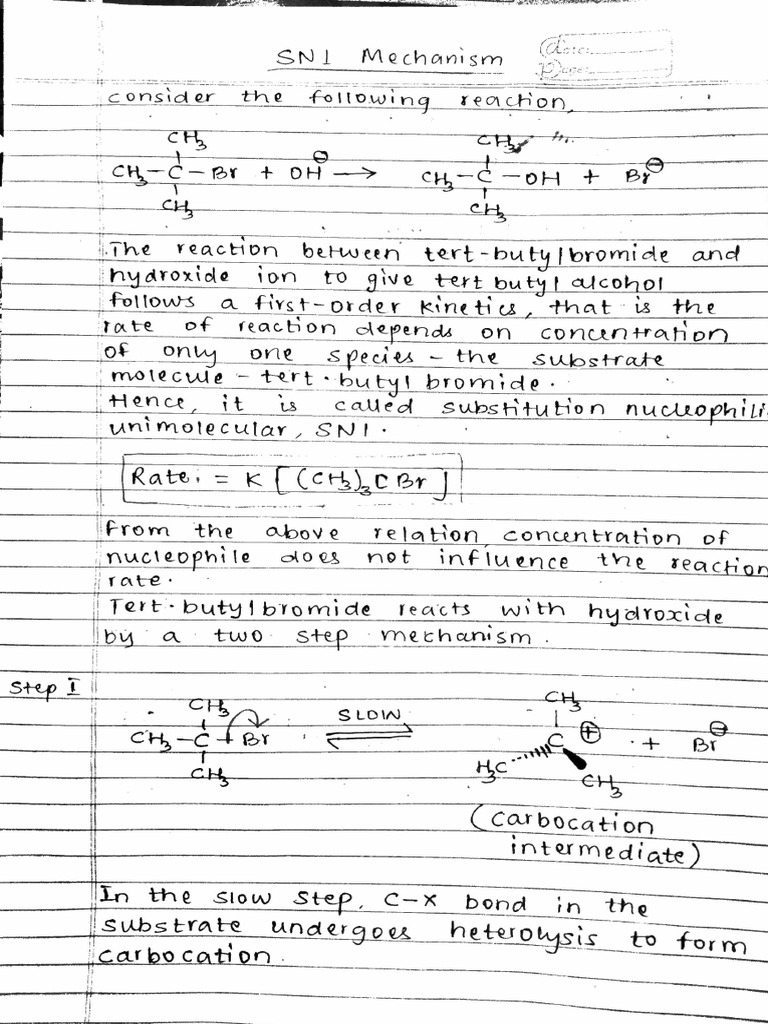 SN1 Mechanism
Date:
Page:
consider the following reaction,
CH3
CH3-C-Br + OH⊖ → CH3-C-OH + Br⊖
CH3
The reaction between tert-butylbromide and
hydroxide ion to give tert butyl alcohol
follows a first-order kinetics, that is the
rate of reaction depends on concentration
of only one species - the substrate
molecule - tert. butyl bromide.
Hence, it is called substitution nucleophili
unimolecular, SN1.
Rate. = K [(CH3)3CBr]
From the above relation, concentration of
nucleophile does not influence the reaction
rate.
Tert-butylbromide reacts with hydroxide
by a two step mechanism.
Step I
CH3 CH3
CH3-C-Br SLOW C⊕ + Br⊖
CH3 H3C CH3
(carbocation
intermediate)
In the slow step, C-X bond in the
substrate undergoes heterolysis to form
carbocation.